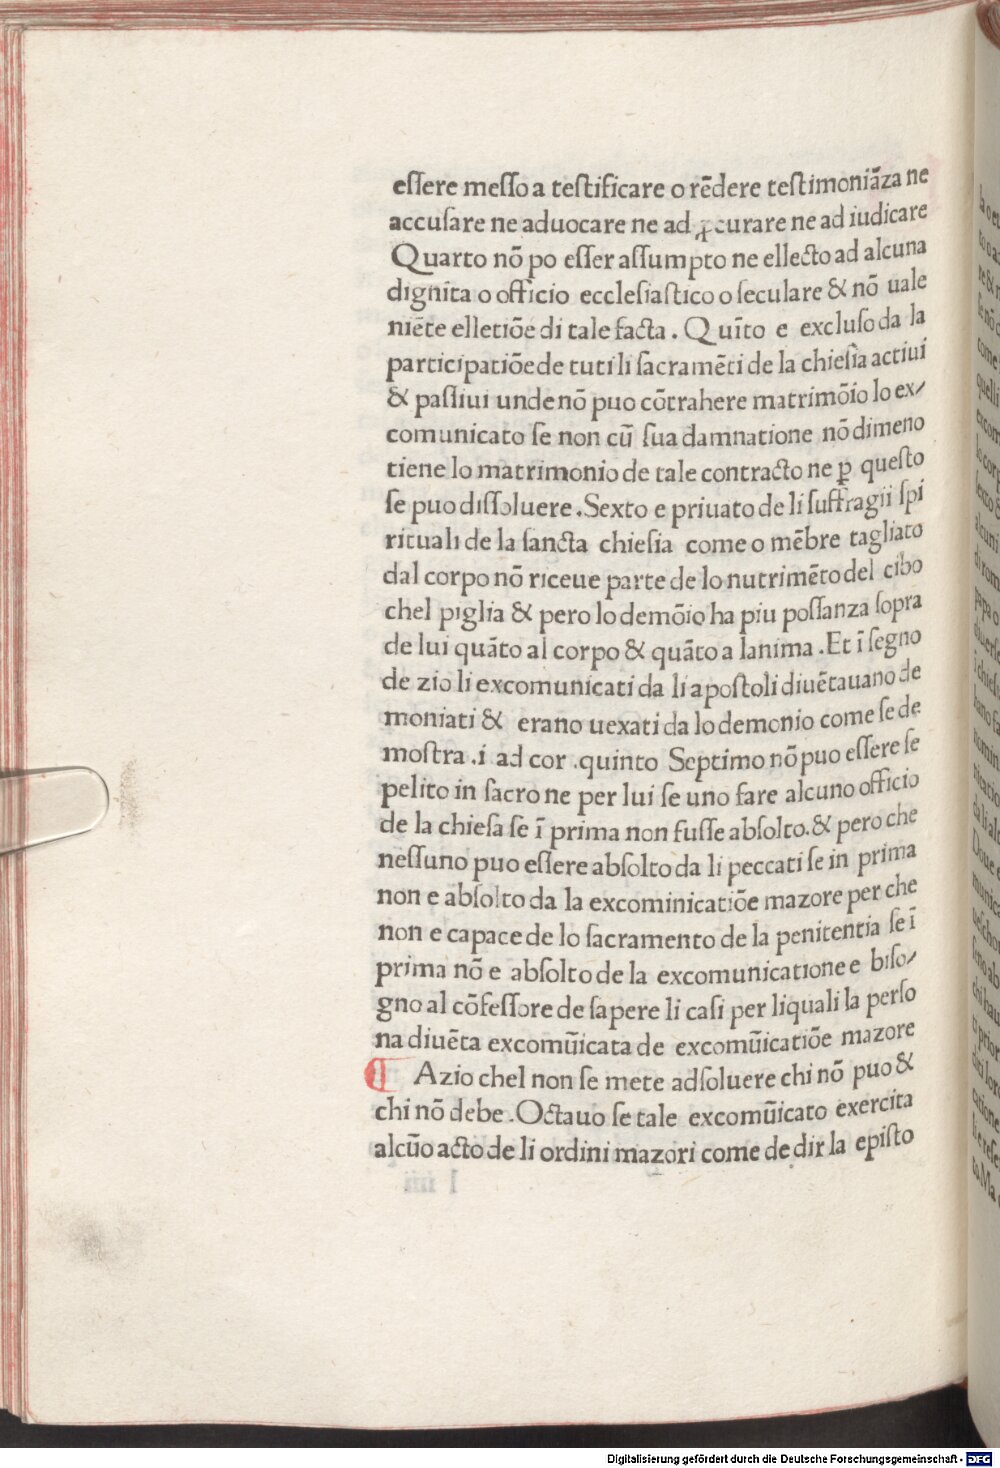 eſſere meſſo a teſtificare o rēdere teſtimoniāza ne
accuſare ne aduocare ne ad ꝓcurare ne ad iudicare
Quarto nō po eſſer aſſumpto ne ellecto ad alcuna
dignīta o officio eccleſiaſtico o ſeculare & nō uale
niēte elletiōe di tale facta . Quīto e excluſo da la
participatiōe de tuti li ſacramēti de la chieſia actiui
& paſſiui unde nō puo cōtrahere matrimōio lo ex⸗
comunicato ſe non cū ſua damnatione nō dimeno
tiene lo matrimonio de tale contracto ne ꝑ queſto
ſe puo diſſoluere . Sexto e priuato de li ſuffragii ſpi
rituali de la ſancta chieſia come o mēbre tagliato
dal corpo nō riceue parte de lo nutrimēto del cibo
chel piglia & pero lo demōio ha piu poſſanza ſopra
de lui quāto al corpo & quāto a lanima . Et ī ſegno
de zio li excomunicati da li apoſtoli diuētauano de
moniati & erano uexati da lo demonio come ſe de
moſtra .i ad cor .quinto Septimo nō puo eſſere ſe
pelito in ſacro ne per lui ſe uno fare alcuno officio
de la chieſa ſe ī prima non fuſſe abſolto. & pero che
neſſuno puo eſſere abſolto da li peccati ſe in prima
non e abſolto da la excominicatiōe mazore per che
non e capace de lo ſacramento de la penitentia ſe ī
prima nō e abſolto de la excomunicatione e biſo⸗
gno al cōfeſſore de ſapere li caſi per liquali la perſo
na diuēta excomūicata de excomūicatiōe mazore
¶ A zio chel non ſe mete adſoluere chi nō puo &
chi nō debe . Octauo ſe tale excomūicato exercita
alcūo acto de li ordini mazori come de dir la epiſto
Digitalisierung gefördert durch die Deutsche Forschungsgemeinschaft - DFG